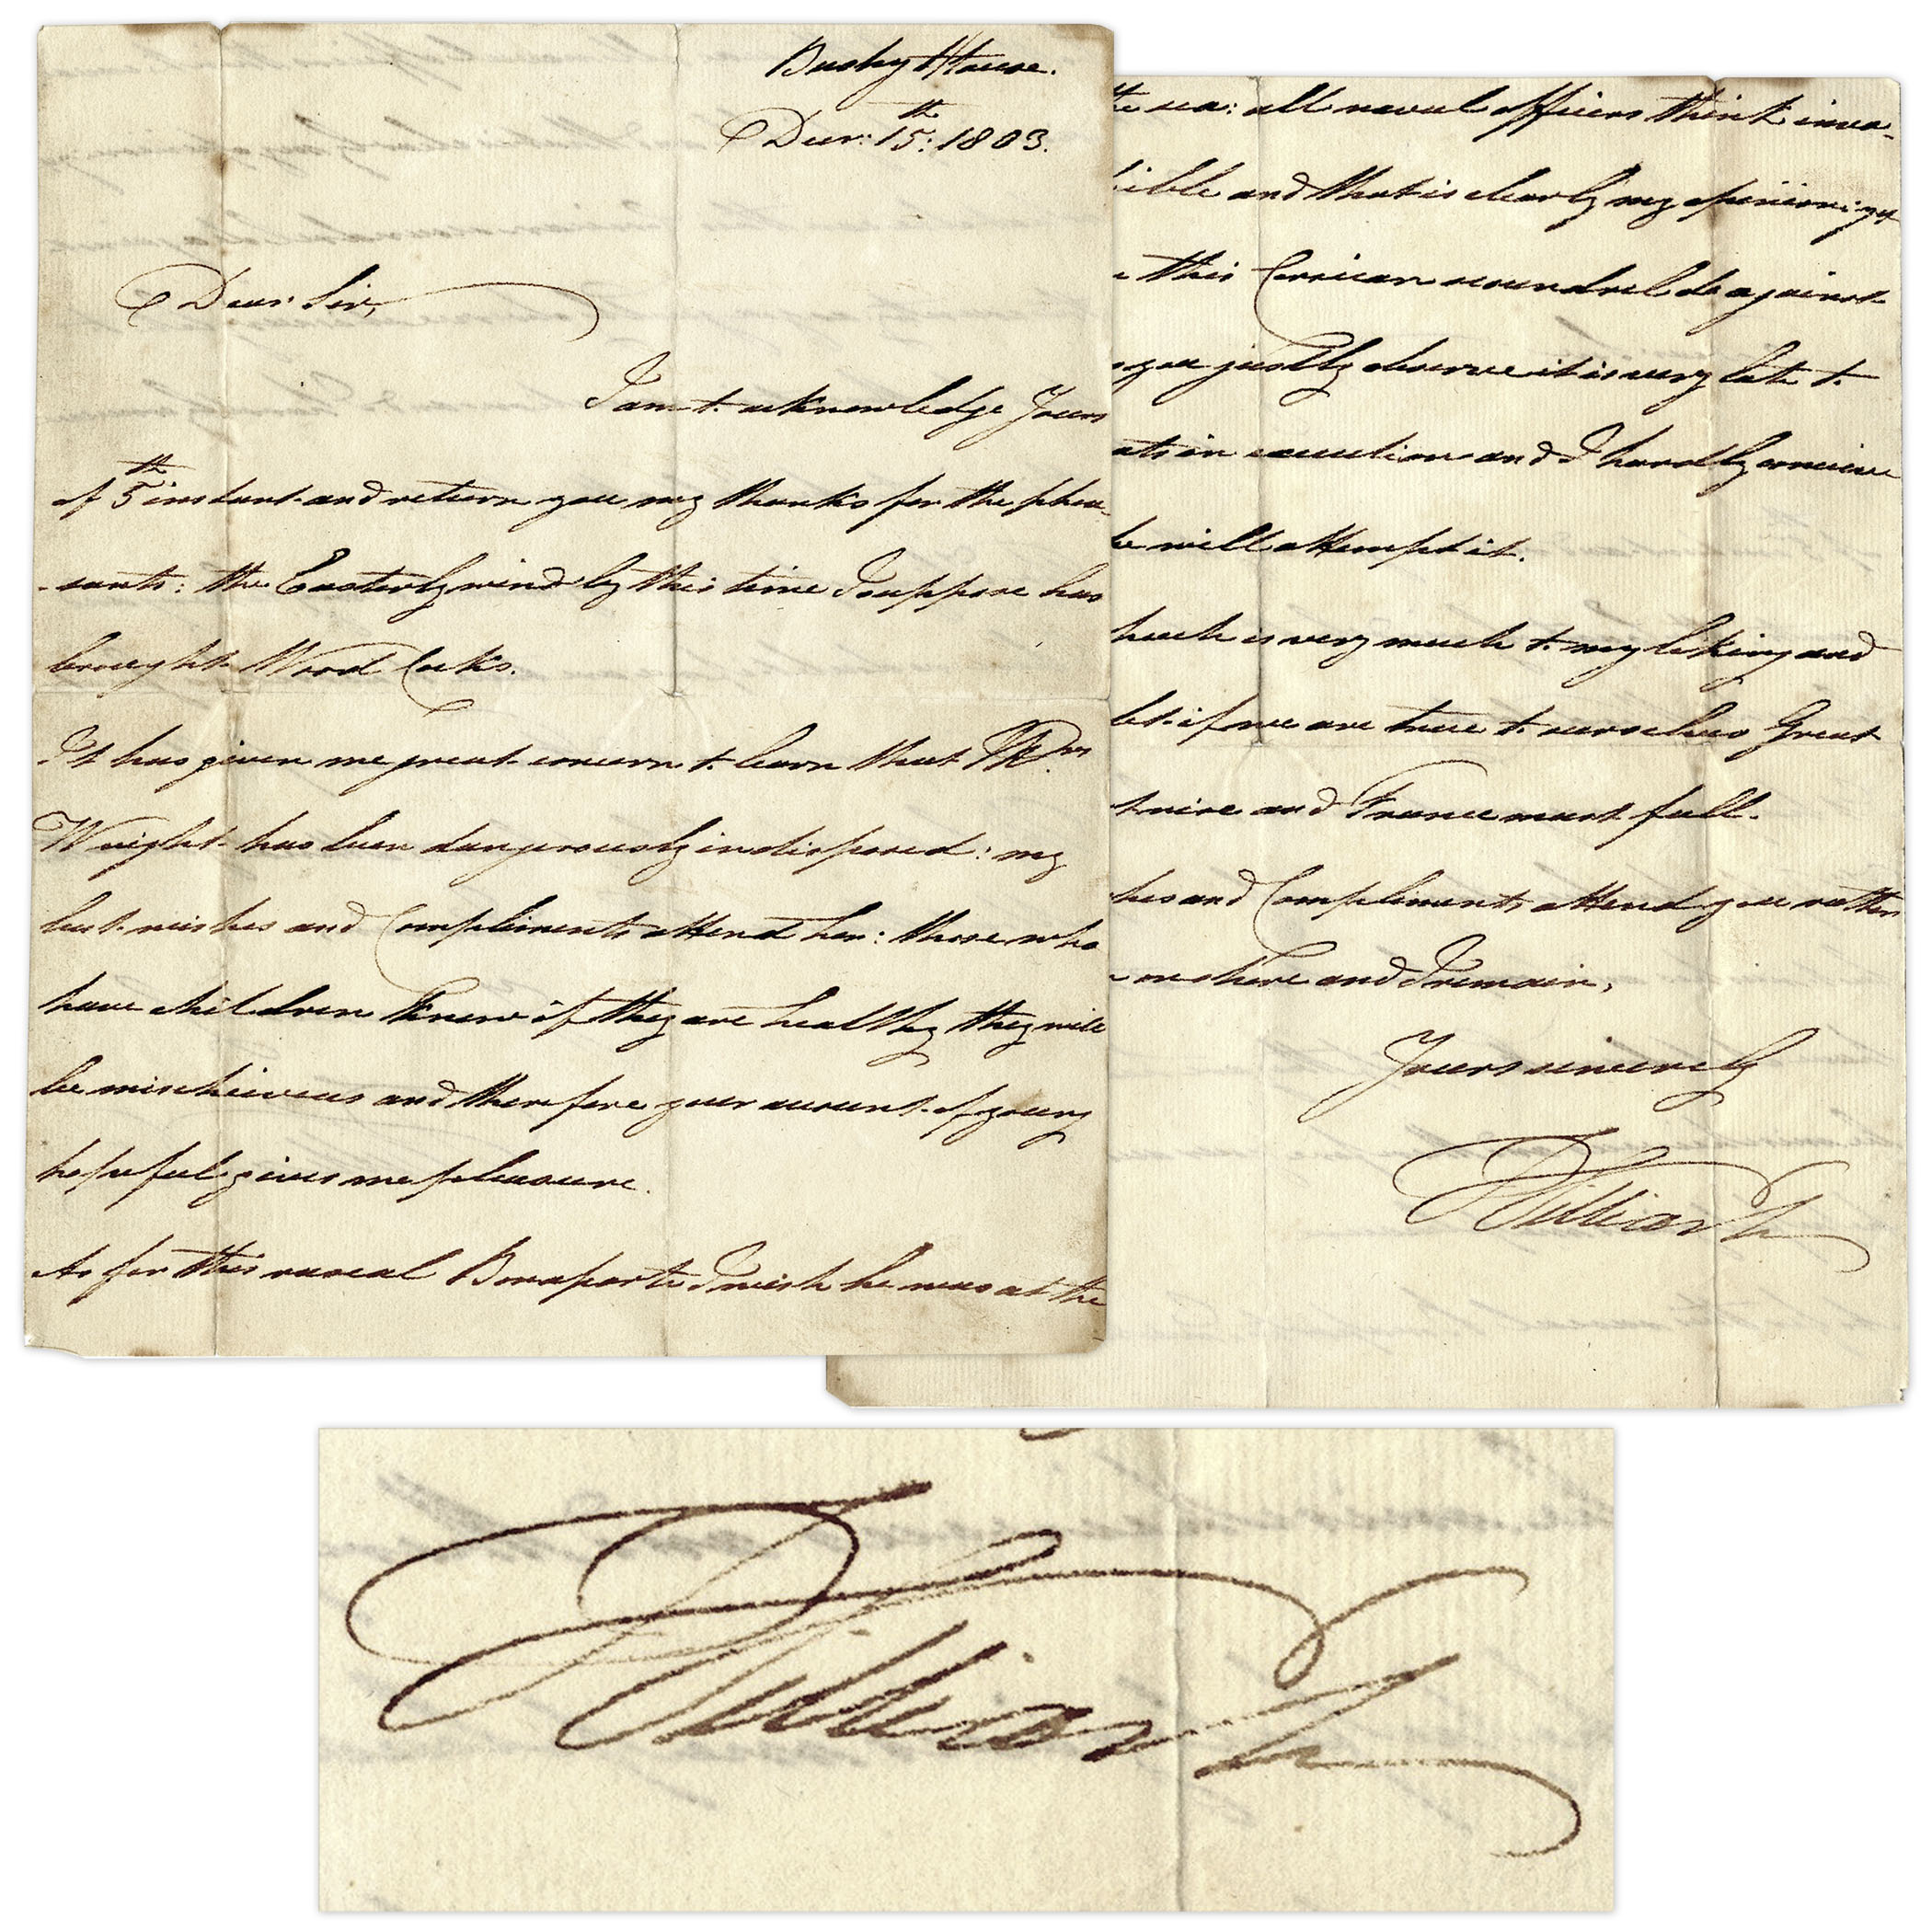 Bushy House.
Decr: 15th: 1803.
Dear Sir,
I am to acknowledge Yours
of 5th instant and return you my thanks for the phea-
-sants: the Easterly wind by this time I suppose has
brought Wood Cocks.
It has given me great concern to learn that Mrs
Wright has been dangerously indisposed: my
best wishes and Compliments attend her: those who
have children know if they are healthy they will
be mischievous and therefore your account of young
hopeful gives me pleasure.
As for this rascal Bonaparte I wish he was at the
the sea: all naval officers think inva-
sible and that is clearly my opinion: yet
this Corsican scoundrel do against
you justly observe it is very late to
ats in execution and I hardly conceive
he will attempt it.
is very much to my liking and
if we are true to ourselves Great
and France must fall.
hes and Compliments attend you
on shore and I remain,
Yours sincerely
William
William